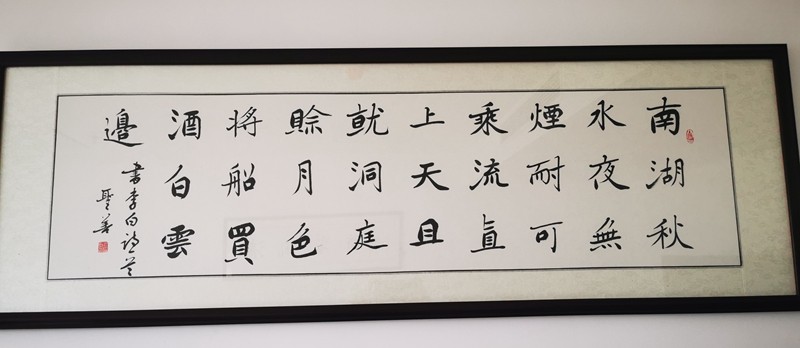 南湖秋
水夜無
煙耐可
乘流直
上天且
就洞庭
賒月色
將船買
酒白雲
邊
書李白詩